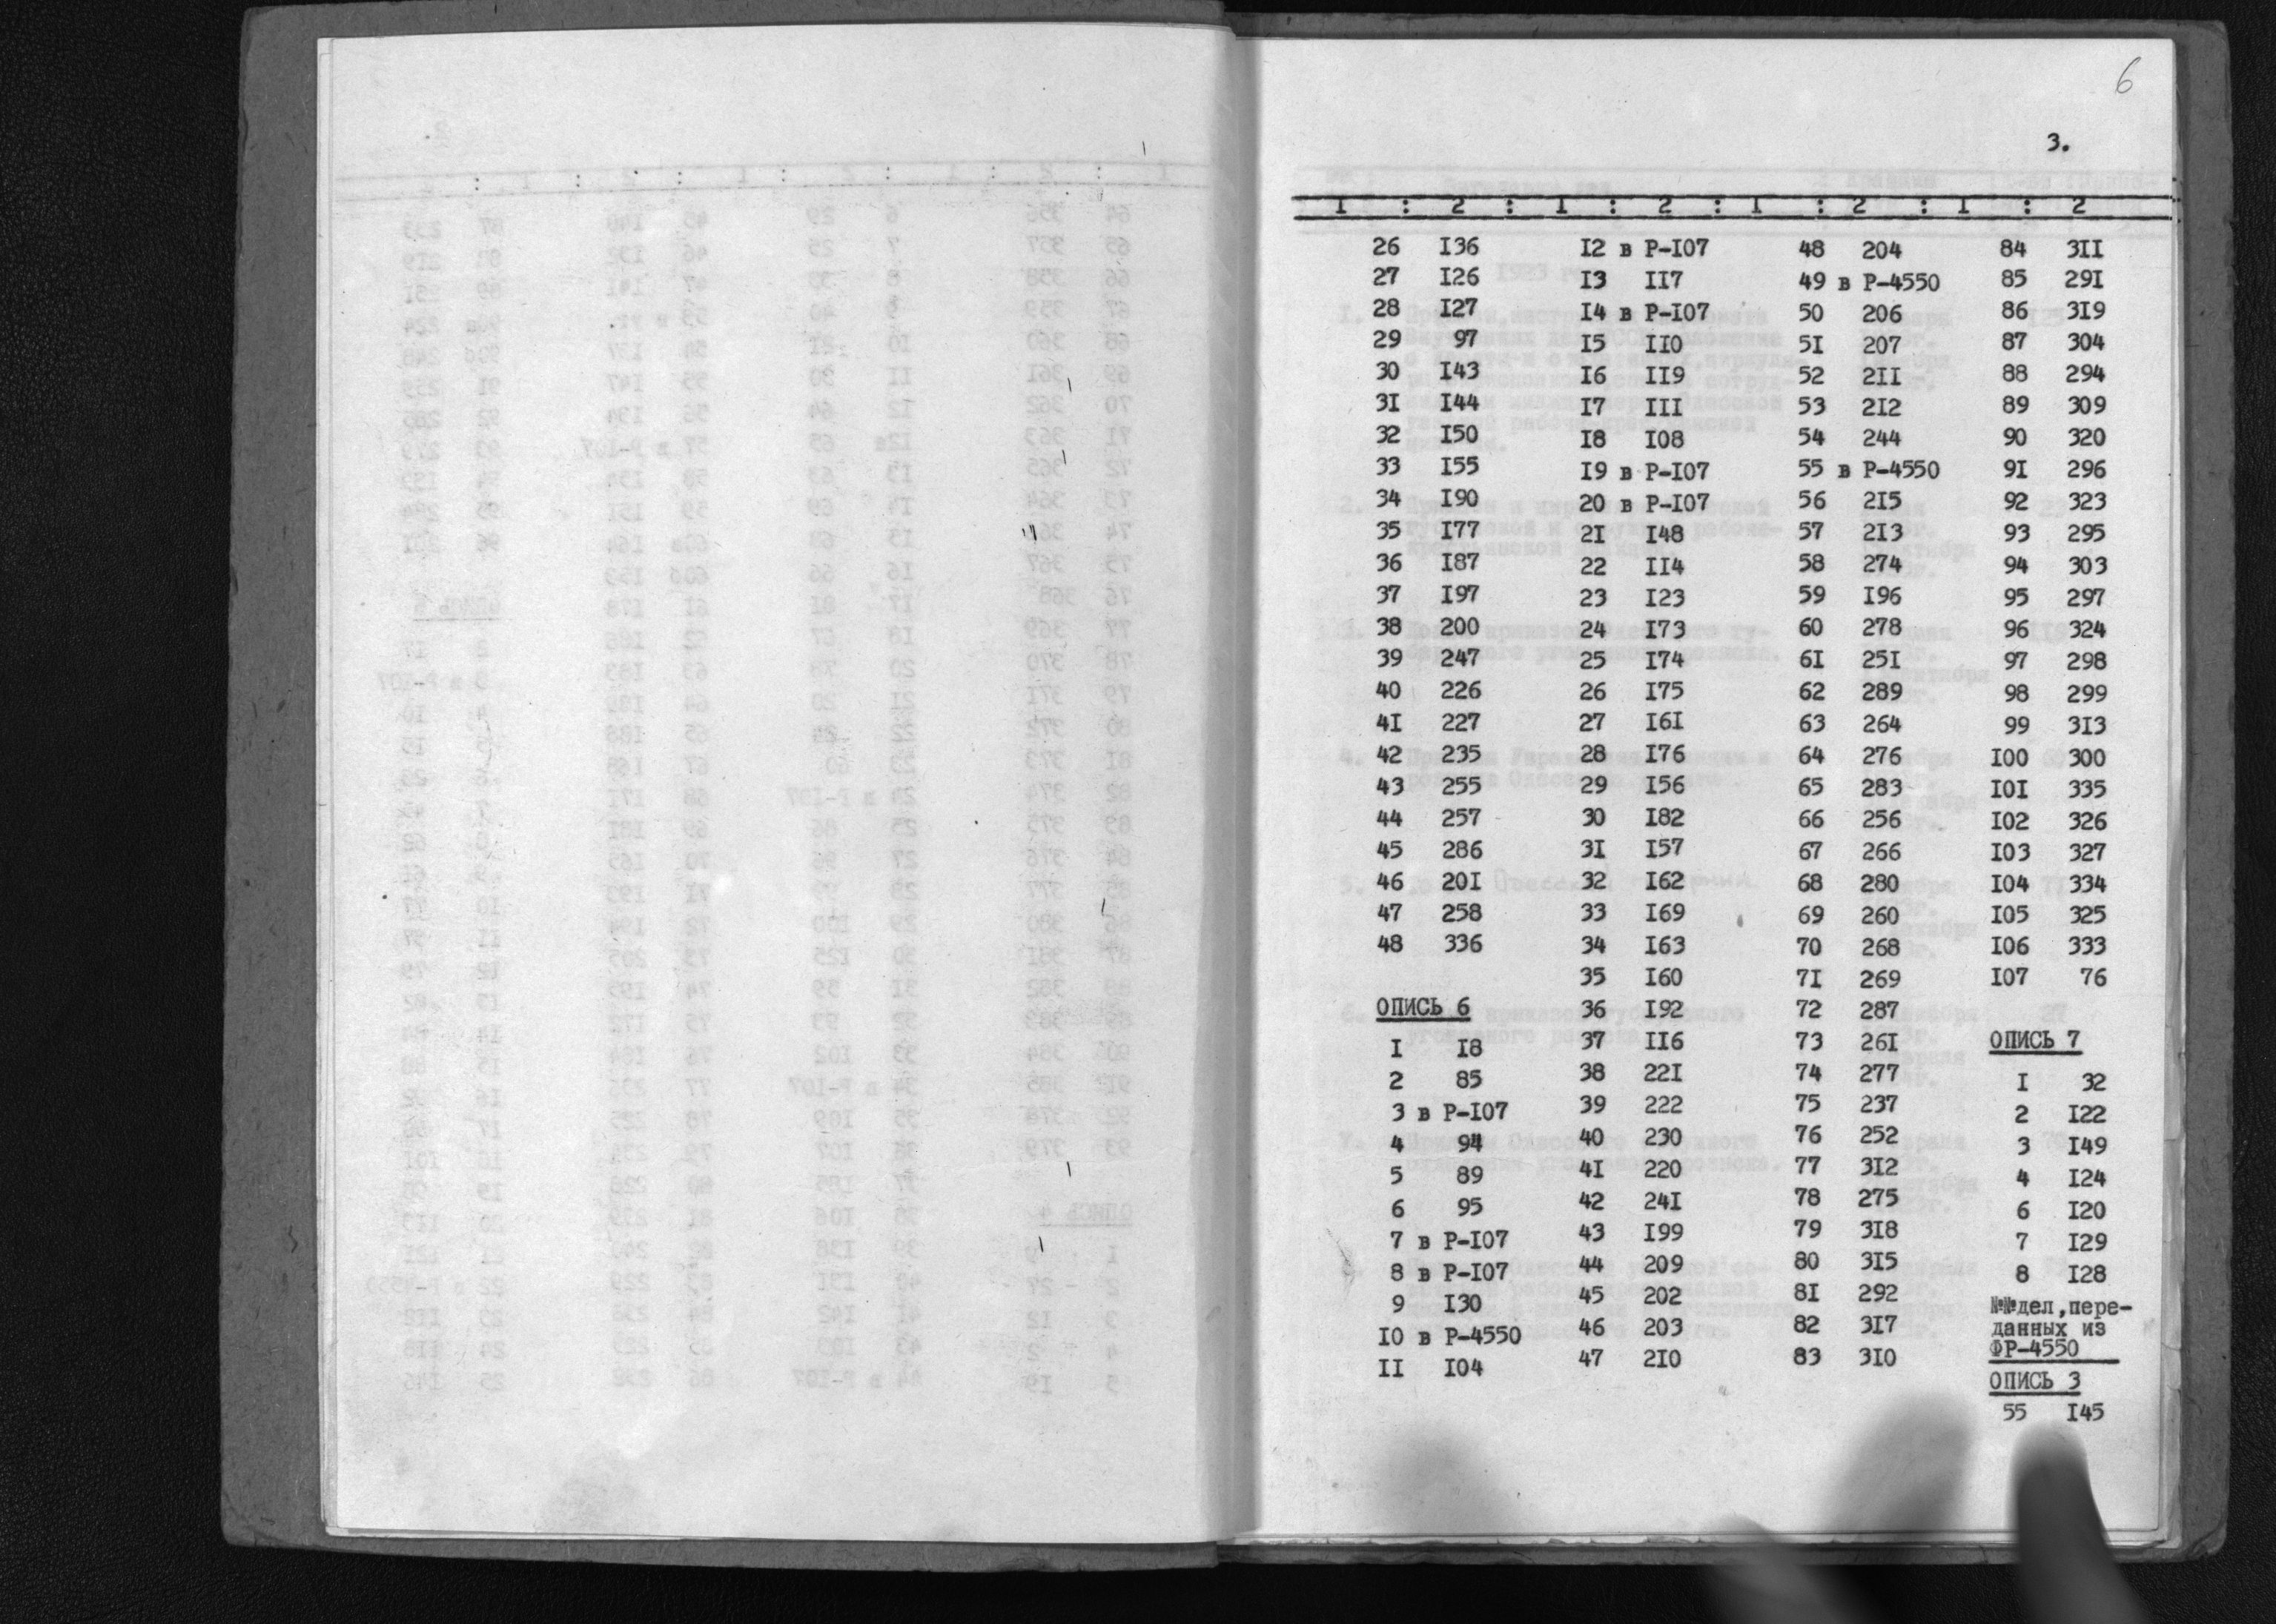 6
3.
I : 2 : I : 2 : I : 2 : I : 2
26 I36
27 I26
28 I27
29 97
30 I43
3I I44
32 I50
33 I55
34 I90
35 I77
36 I87
37 I97
38 200
39 247
40 226
4I 227
42 235
43 255
44 257
45 286
46 20I
47 258
48 336
ОПИСЬ 6
I I8
2 85
3 в Р-I07
4 94
5 89
6 95
7 в Р-I07
8 в Р-I07
9 I30
I0 в Р-4550
II I04
I2 в Р-I07
I3 II7
I4 в Р-I07
I5 II0
I6 II9
I7 III
I8 I08
I9 в Р-I07
20 в Р-I07
2I I48
22 II4
23 I23
24 I73
25 I74
26 I75
27 I6I
28 I76
29 I56
30 I82
3I I57
32 I62
33 I69
34 I63
35 I60
36 I92
37 II6
38 22I
39 222
40 230
4I 220
42 24I
43 I99
44 209
45 202
46 203
47 2I0
48 204
49 в Р-4550
50 206
5I 207
52 2II
53 2I2
54 244
55 в Р-4550
56 2I5
57 2I3
58 274
59 I96
60 278
6I 25I
62 289
63 264
64 276
65 283
66 256
67 266
68 280
69 260
70 268
7I 269
72 287
73 26I
74 277
75 237
76 252
77 3I2
78 275
79 3I8
80 3I5
8I 292
82 3I7
83 3I0
84 3II
85 29I
86 3I9
87 304
88 294
89 309
90 320
9I 296
92 323
93 295
94 303
95 297
96 324
97 298
98 299
99 3I3
I00 300
I0I 335
I02 326
I03 327
I04 334
I05 325
I06 333
I07 76
ОПИСЬ 7
I 32
2 I22
3 I49
4 I24
6 I20
7 I29
8 I28
№№дел,пере-
данных из
ФР-4550
ОПИСЬ 3
55 I45